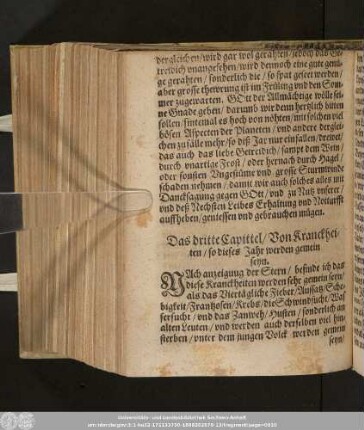 dergleichen / wird gar wol gerahten / jedoch das Ge-
treidich vnangesehen / wird dennoch eine gute genü-
ge gerahten / sonderlich die / so spat geseet werden /
aber grosse thewrung ist im Früling vnd den Som-
mer zugewarten. GOtt der Allmächtige wölle sei-
ne Gnade geben / darumb wir denn hertzlich bitten
sollen / sintemal es hoch von nöhten / mit solchen viel
bösen Aspecten der Planeten / vnd andere dergly-
chen zufälle mehr / so diß Jar mit einfallen / drewet /
das auch das liebe Getreidich / sampt dem Wein
durch vnartige Frost / oder hernach durch Hagel /
oder sonsten Vngestüme vnd grosse Sturmwinde
schaden nehmen / damit wir auch solches alles mit
Dancksagung gegen GOtt / vnd zu Nutz vnserer
vnd deß Nechsten Leibes Erhaltung vnd Notturfft
auffheben / geniessen vnd gebrauchen mügen.
Das dritte Capittel / Von Kranckhei-
ten / so dieses Jahr werden gemein
seyn.
NAch anzeigung der Stern / befinde ich das
diese Kranckheiten werden sehr gemein seyn /
als das Viertägliche Fieber / Aussatz / Schä-
bigkeit / Frantzosen / Krebs / die Schwindsucht / Was-
sersucht / vnd das Zanweh / Husten / sonderlich an
alten Leuten / vnd werden auch derselben viel hin-
sterben / vnter dem jungen Volck werden gemein
seyn /
Universitäts- und Landesbibliothek Sachsen-Anhalt